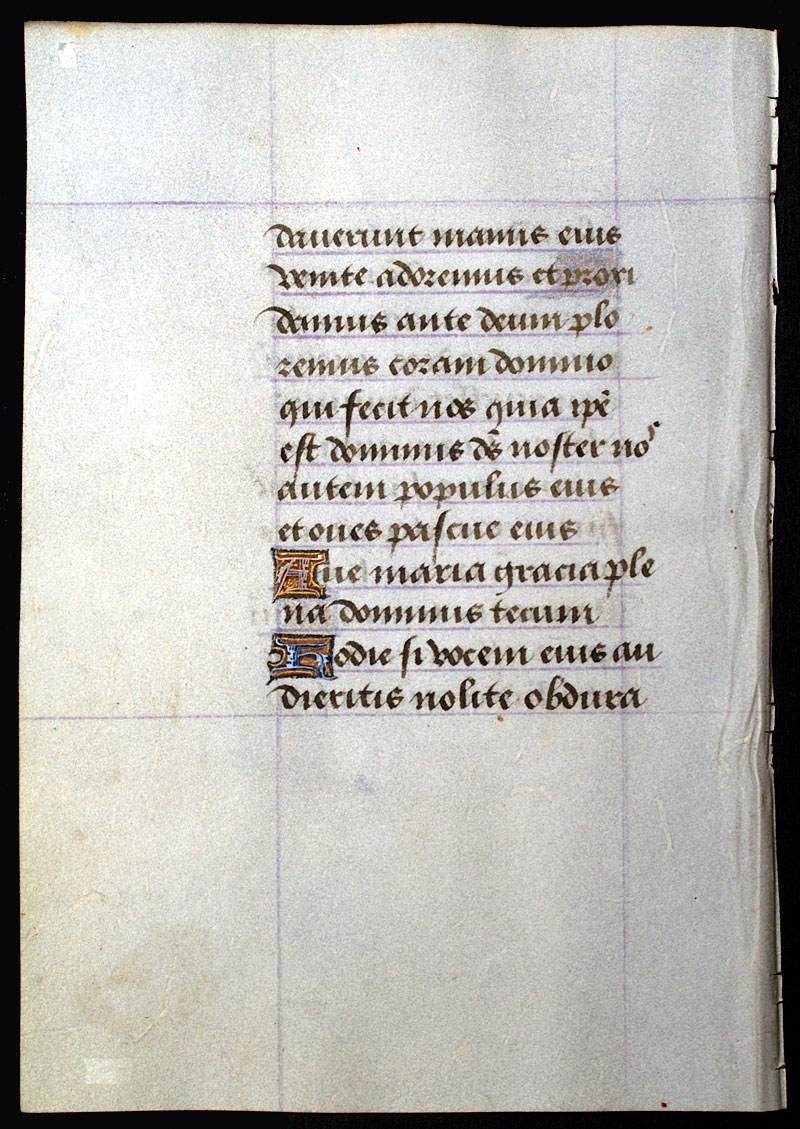 dauerunt manus eius
venite adoremus et proxi
damus ante deum plo
remus coram domino
qui fecit nos quia ip̄e
est dominus ds̄ noster nos
autem populus eius
et oues pascue eius
Aue maria gracia ple
na dominus tecum
Hodie si vocem eius au
dieritis nolite obdura